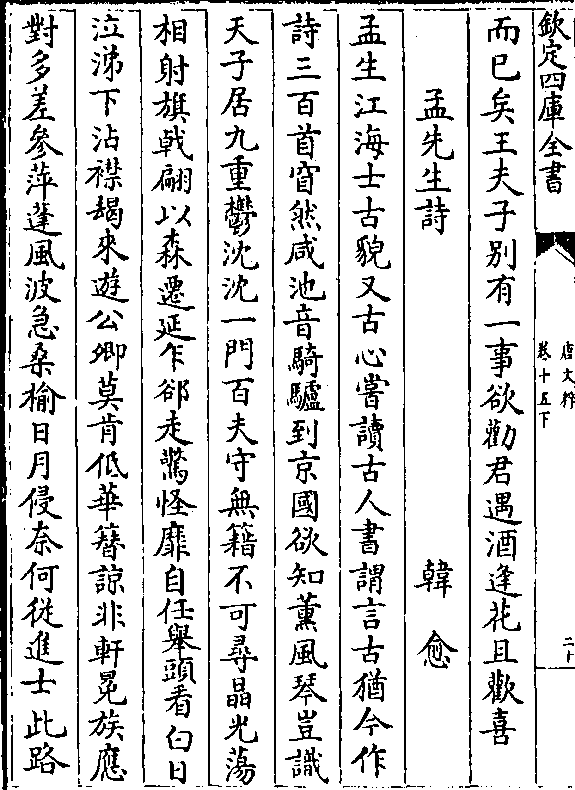 欽定四庫全書
唐文粹
卷十五下
而已矣王夫子別有一事欲勸君遇酒逢花且歡喜
孟先生詩　韓愈
孟生江海士古貌又古心嘗讀古人書謂言古猶今作
詩三百首窅然咸池音騎驢到京國欲知薰風琴豈識
天子居九重鬱沈沈一門百夫守無籍不可尋晶光蕩
相射旗戟翩以森遷延乍郤走驚怪靡自任舉頭看白日
泣涕下沾襟朅來遊公卿莫肯低華簮諒非軒冕族應
對多差參萍蓬風波急桑榆日月侵奈何從進士此路